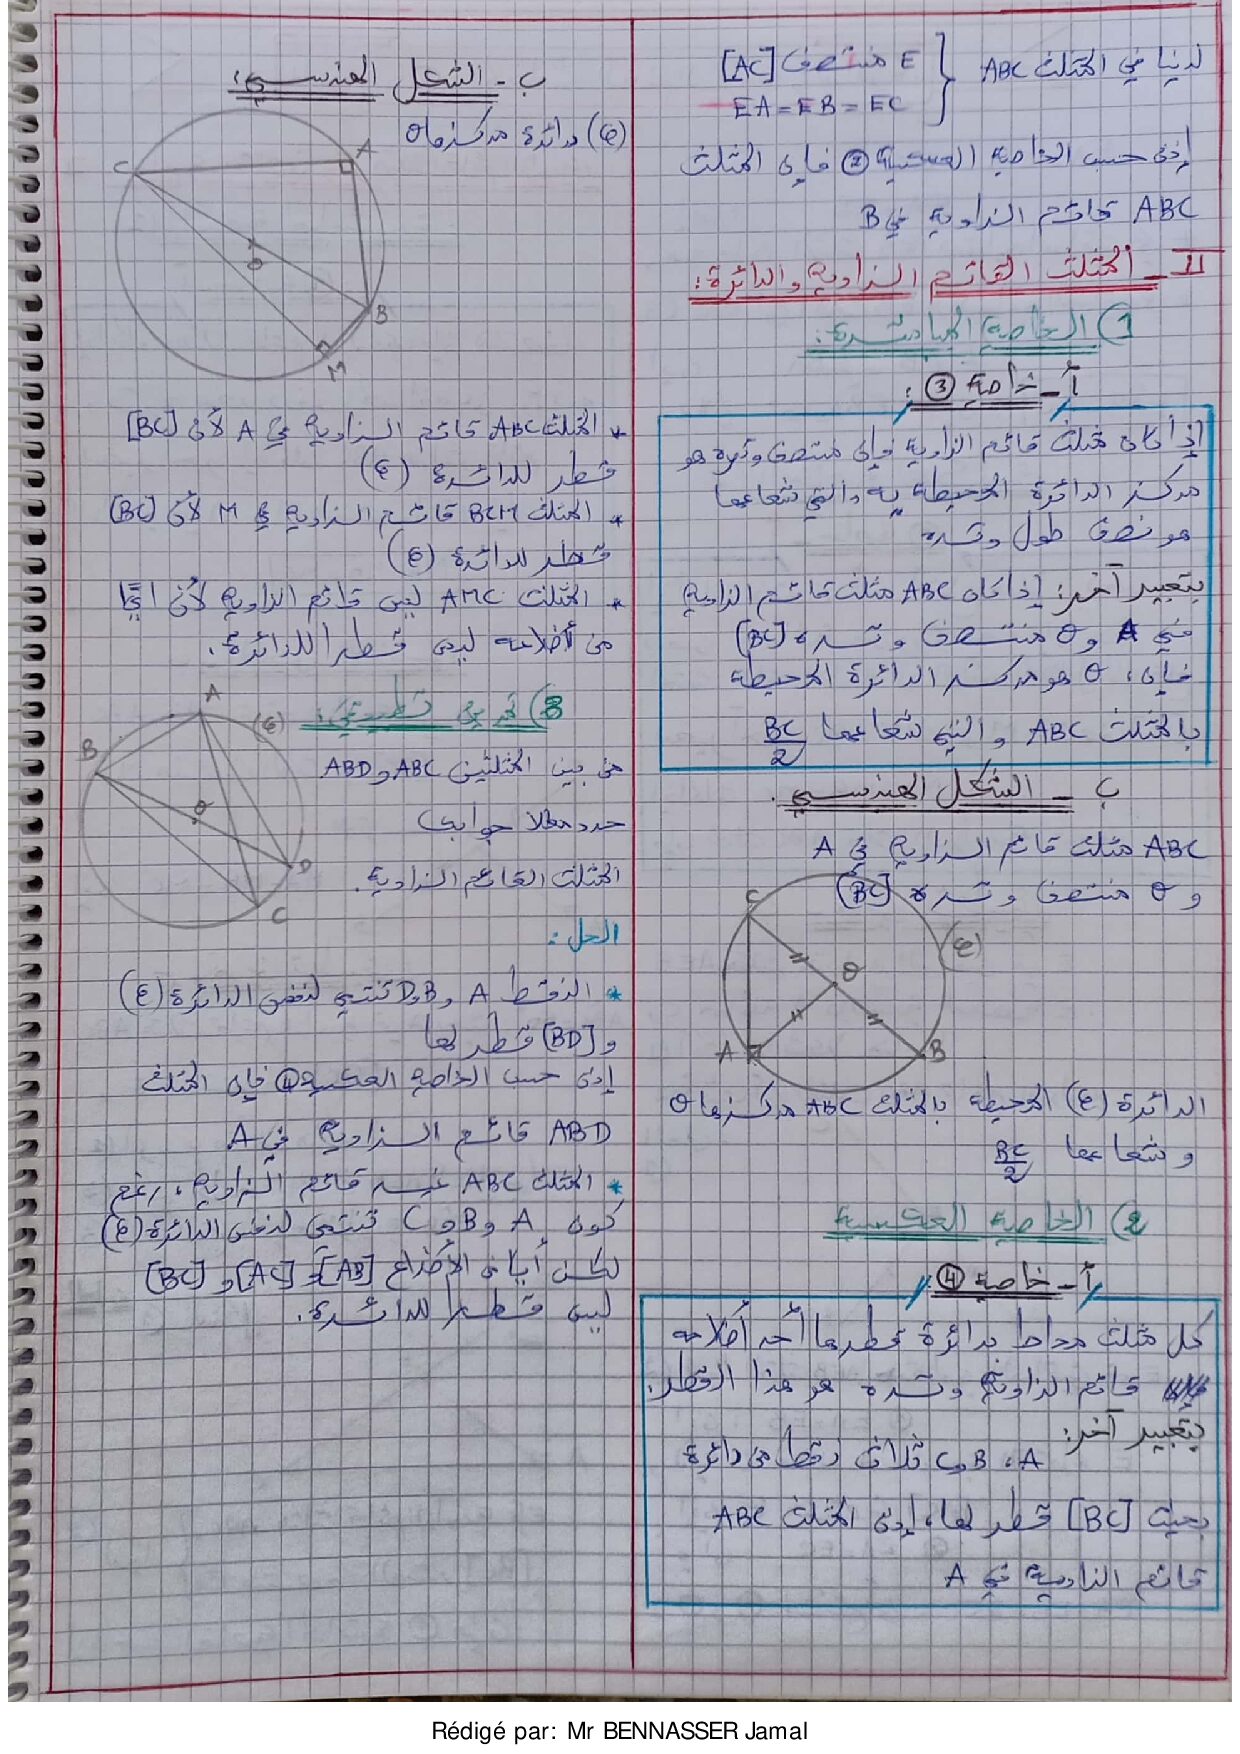 لدينا في المثلث ABC { E منتصف [AC]
EA = EB = EC
إذن حسب الخاصية العكسية ② فإن المثلث
ABC قائم الزاوية في B
II _ المثلث القائم الزاوية والدائرة:
1) الخاصية المباشرة:
أ _ خاصية ③ :
إذا كان مثلث قائم الزاوية فإن منتصف وتره هو
مركز الدائرة المحيطة به والتي شعاعها
هو نصف طول وتره
بتعبير آخر: إذا كان ABC مثلث قائم الزاوية
في A و O منتصف وتره [BC]
فإن، O هو مركز الدائرة المحيطة
بالمثلث ABC والتي شعاعها BC/2
ب _ الشكل الهندسي.
ABC مثلث قائم الزاوية في A
و O منتصف وتره [BC]
C
(ع)
O
A
B
الدائرة (ع) المحيطة بالمثلث ABC مركزها O
وشعاعها BC/2
2) الخاصية العكسية
أ _ خاصية ④ :
كل مثلث محاط بدائرة قطرها أحد أضلاعه
قائم الزاوية وتره هو هذا القطر.
بتعبير آخر:
A، B و C ثلاث نقط من دائرة
بحيث [BC] قطر لها، إذن المثلث ABC
قائم الزاوية في A
ب _ الشكل الهندسي:
(ع) دائرة مركزها O
A
C
O
B
M
* المثلث ABC قائم الزاوية في A لأن [BC]
قطر للدائرة (ع)
* المثلث BCM قائم الزاوية في M لأن [BC]
قطر للدائرة (ع)
* المثلث AMC ليس قائم الزاوية لأن أيًّا
من أضلاعه ليس قطرا للدائرة.
3) تمرين تطبيقي:
A
(ع)
B
O
D
C
من بين المثلثين ABC و ABD
حدد معللا جوابك
المثلث القائم الزاوية.
الحل:
* النقط A و B و D تنتمي لنفس الدائرة (ع)
و [BD] قطر لها
إذن حسب الخاصية العكسية ④ فإن المثلث
ABD قائم الزاوية في A
* المثلث ABC غير قائم الزاوية، رغم
كون A و B و C تنتمي لنفس الدائرة (ع)
لكن أيا من الأضلاع [AB] و [AC] و [BC]
ليس قطرا للدائرة.
Rédigé par: Mr BENNASSER Jamal